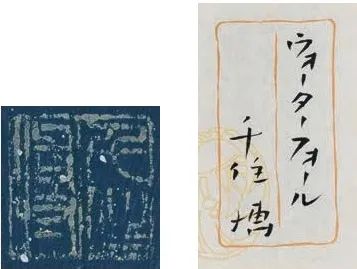 ウォーターフォール
千住博